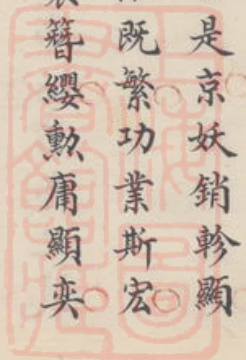 是京妖銷軫顯
既繁功業斯宏
簪纓勲庸顯奕